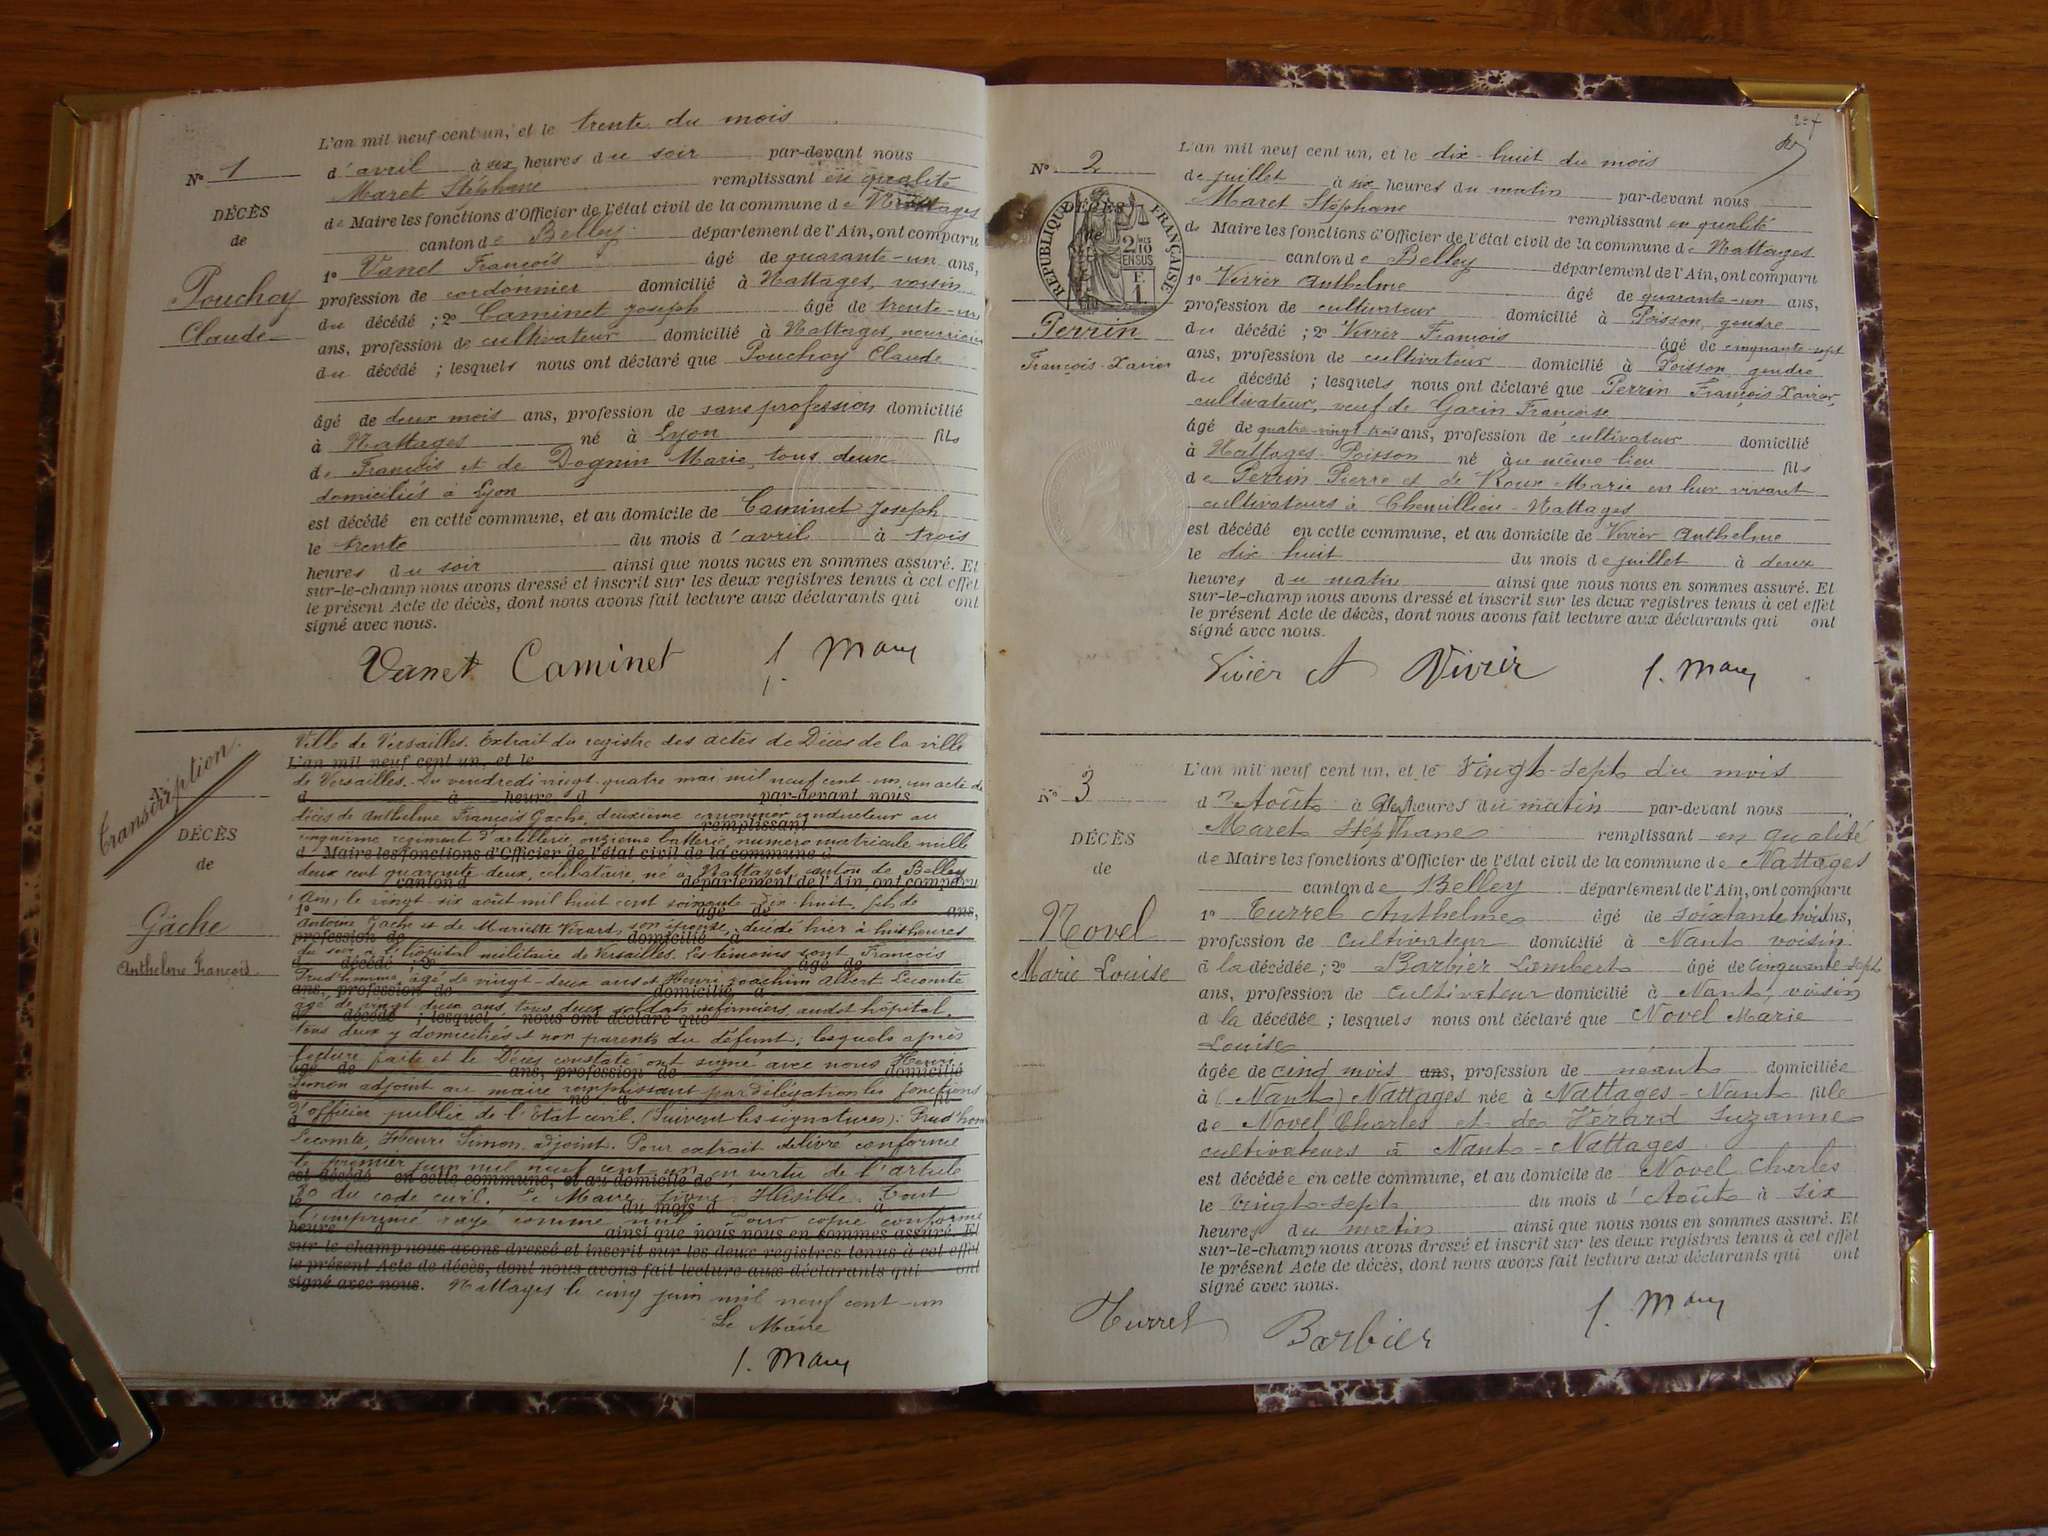 L'an mil neuf cent un, et le trente du mois
N° 1
d'avril à six heures du soir par-devant nous
Maret Stéphane remplissant en qualité
DÉCÈS
de Maire les fonctions d'Officier de l'état civil de la commune de Nattages
de
canton de Belley département de l'Ain, ont comparu
1° Vanet François âgé de quarante-un ans,
Pouchoy
profession de cordonnier domicilié à Nattages, voisin
du décédé ; 2° Caminet Joseph âgé de trente-
Claude
ans, profession de cultivateur domicilié à Nattages, nourricier
du décédé ; lesquels nous ont déclaré que Pouchoy Claude
âgé de deux mois ans, profession de sans profession domicilié
à Nattages né à Lyon fils
de François et de Dognin Marie, tous deux
domiciliés à Lyon
est décédé en cette commune, et au domicile de Caminet Joseph
le trente du mois d'avril à trois
heures du soir ainsi que nous nous en sommes assuré. Et
sur-le-champ nous avons dressé et inscrit sur les deux registres tenus à cet effet
le présent Acte de décès, dont nous avons fait lecture aux déclarants qui ont
signé avec nous.
Vanet Caminet S. Maret
Transcription
N°
DÉCÈS
de
Gâche
Anthelme François
Ville de Versailles. Extrait du registre des actes de Décès de la ville
L'an mil neuf cent un, et le
de Versailles. Du vendredi vingt-quatre mai mil neuf cent un, un acte de
d à heure d par-devant nous
décès de Anthelme François Gache, deuxième canonnier conducteur au
remplissant
cinquième régiment d'artillerie, onzième batterie, numéro matricule mille
d Maire les fonctions d'Officier de l'état civil de la commune d
deux cent quarante-deux, célibataire, né à Nattages, canton de Belley
canton d département de l'Ain, ont comparu
Ain, le vingt-six août mil huit cent soixante-dix-huit, fils de
1° âgé de ans,
Antoine Gache et de Mariette Virard, son épouse, décédé hier à huit heures
profession de domicilié à
du soir à l'hôpital militaire de Versailles. Les témoins sont François
d décédé 2° âgé de
Prud'homme, âgé de vingt-deux ans et Henri Joachim Albert Lecomte
ans, profession de domicilié à
âgé de vingt-deux ans, tous deux soldats infirmiers audit hôpital,
d décédé ; lesquel nous ont déclaré que
tous deux y domiciliés et non parents du défunt ; lesquels après
lecture faite et le Décès constaté ont signé avec nous Henri
âgé de ans, profession de domicilié
Simon adjoint au maire remplissant par délégation les fonctions
à né à fil
d'officier public de l'Etat civil. (Suivent les signatures) : Prud'hom
Lecomte, Henri Simon, adjoint. Pour extrait délivré conforme
le premier juin mil neuf cent-un en vertu de l'article
est décédé en cette commune, et au domicile de
80 du code civil. Le Maire, signé : Illisible. Tout
le du mois d à
l'imprimé rayé comme nul. Pour copie conforme
heure ainsi que nous nous en sommes assuré. Et
sur-le-champ nous avons dressé et inscrit sur les deux registres tenus à cet effet
le présent Acte de décès, dont nous avons fait lecture aux déclarants qui ont
signé avec nous. Nattages le cinq juin mil neuf cent-un
Le Maire
S. Maret
L'an mil neuf cent un, et le dix-huit du mois
N° 2
de juillet à six heures du matin par-devant nous
Maret Stéphane remplissant en qualité
RÉPUBLIQUE FRANÇAISE
DÉCÈS
de
de Maire les fonctions d'Officier de l'état civil de la commune de Nattages
canton de Belley département de l'Ain, ont comparu
1° Vivier Anthelme âgé de quarante-un ans,
profession de cultivateur domicilié à Poisson, gendre
Perrin
du décédé ; 2° Vivier François âgé de cinquante-sept
François-Xavier
ans, profession de cultivateur domicilié à Poisson, gendre
du décédé ; lesquels nous ont déclaré que Perrin François Xavier,
cultivateur, veuf de Garin Françoise
âgé de quatre-vingt-trois ans, profession de cultivateur domicilié
à Nattages-Poisson né au même lieu fils
de Perrin Pierre et de Roux Marie en leur vivant
cultivateurs à Chemillieu-Nattages
est décédé en cette commune, et au domicile de Vivier Anthelme
le dix huit du mois de juillet à deux
heures du matin ainsi que nous nous en sommes assuré. Et
sur-le-champ nous avons dressé et inscrit sur les deux registres tenus à cet effet
le présent Acte de décès, dont nous avons fait lecture aux déclarants qui ont
signé avec nous.
Vivier A Vivier S. Maret
L'an mil neuf cent un, et le Vingt-Sept du mois
N° 3
d'Août à heures du matin par-devant nous
Maret Stéphane remplissant en qualité
DÉCÈS
de Maire les fonctions d'Officier de l'état civil de la commune de Nattages
de
canton de Belley département de l'Ain, ont comparu
1° Turrel Anthelme âgé de soixante ans,
Novel
profession de Cultivateur domicilié à Nant voisin
Marie Louise
à la décédée ; 2° Barbier Lambert âgé de cinquante sept
ans, profession de cultivateur domicilié à Nant, voisin
à la décédée ; lesquels nous ont déclaré que Novel Marie
Louise
âgée de cinq mois ans, profession de néant domiciliée
à (Nant) Nattages née à Nattages-Nant fille
de Novel Charles et de Vérard Suzanne
cultivateurs à Nant-Nattages
est décédée en cette commune, et au domicile de Novel Charles
le vingt-sept du mois d'Août à six
heures du matin ainsi que nous nous en sommes assuré. Et
sur-le-champ nous avons dressé et inscrit sur les deux registres tenus à cet effet
le présent Acte de décès, dont nous avons fait lecture aux déclarants qui ont
signé avec nous.
Turrel Barbier S. Maret